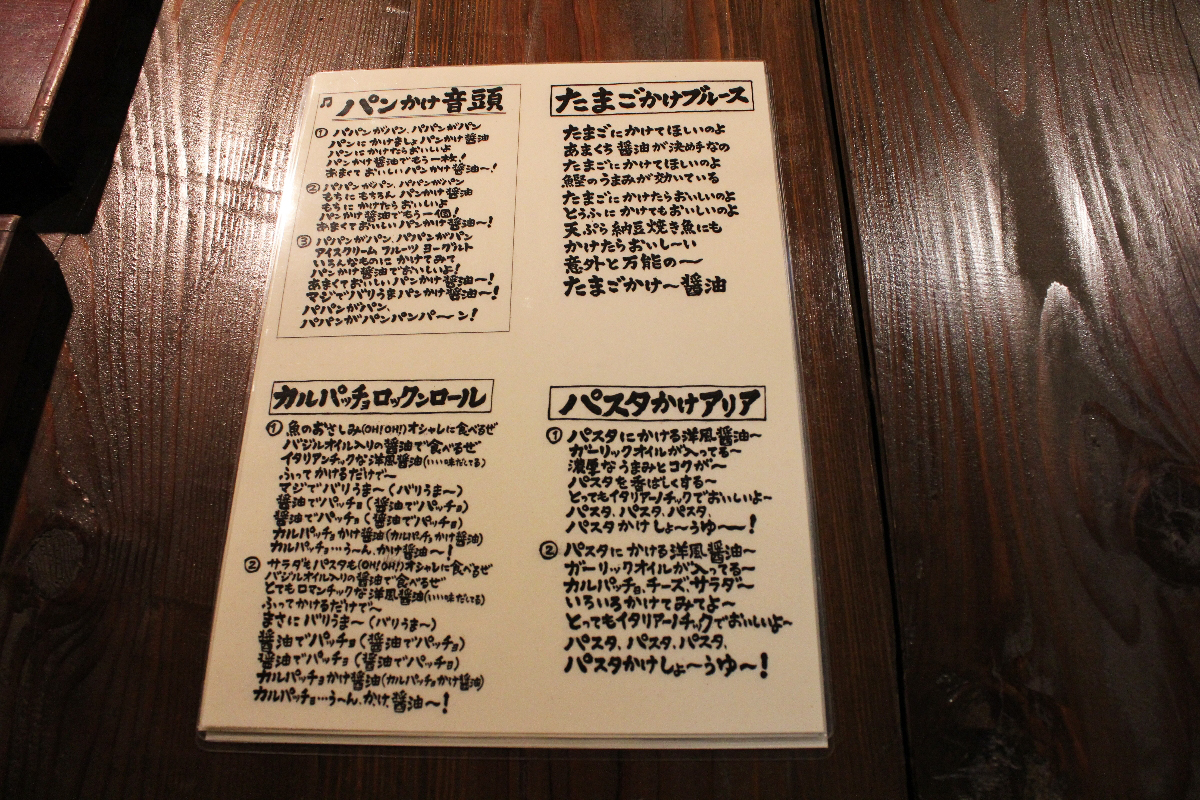 ♫ パンかけ音頭
① パパンがパン、パパンがパン
パンにかけましょ パンかけ醤油
パンにかけたらおいしいよ
パンかけ醤油でもう一枚!
あまくて おいしいパンかけ醤油〜!
② パパンがパン、パパンがパン
もちに もちろん パンかけ醤油
もちに かけたら おいしいよ
パンかけ 醤油でもう一個!
あまくておいしい パンかけ醤油〜!
③ パパンがパン、パパンがパン
アイスクリーム フルーツ ヨーグルト
いろんなものに かけてみて
パンかけ醤油でおいしいよ!
あまくておいしい パンかけ醤油〜!
マジでバリうまパンかけ醤油〜!
パパンがパン、
パパンがパンパンパ〜ン!
たまごかけブルース
たまごにかけてほしいのよ
あまくち醤油が決め手なの
たまごにかけてほしいのよ
鰹のうまみが効いている
たまごにかけたらおいしいのよ
とうふにかけてもおいしいのよ
天ぷら納豆焼き魚にも
かけたらおいし〜い
意外と万能の〜
たまごかけ〜醤油
カルパッチョロックンロール
① 魚のおさしみ(OH!OH!)オシャレに食べるぜ
バジルオイル入りの醤油で食べるぜ
イタリアンチックな洋風醤油(いい味だしてる)
ふってかけるだけで〜
マジでバリうま〜(バリうま〜)
醤油でパッチョ(醤油でパッチョ)
醤油でパッチョ(醤油でパッチョ)
カルパッチョかけ醤油(カルパッチョかけ醤油)
カルパッチョ…う〜ん、かけ醤油〜!
② サラダもパスタも(OH!OH!)オシャレに食べるぜ
バジルオイル入りの醤油で食べるぜ
とてもロマンチックな洋風醤油(いい味だしてる)
ふってかけるだけで〜
まさにバリうま〜(バリうま〜)
醤油でパッチョ(醤油でパッチョ)
醤油でパッチョ(醤油でパッチョ)
カルパッチョかけ醤油(カルパッチョかけ醤油)
カルパッチョ…う〜ん、かけ醤油〜!
パスタかけアリア
① パスタにかける洋風醤油〜
ガーリックオイルが入ってる〜
濃厚なうまみとコクが〜
パスタを香ばしくする〜
とってもイタリアーノチックでおいしいよ〜
パスタ、パスタ、パスタ、
パスタかけしょ〜うゆ〜!
② パスタにかける洋風醤油〜
ガーリックオイルが入ってる〜
カルパッチョ、チーズ、サラダ〜
いろいろかけてみてよ〜
とってもイタリアーノチックでおいしいよ〜
パスタ、パスタ、パスタ、
パスタかけしょ〜うゆ〜!